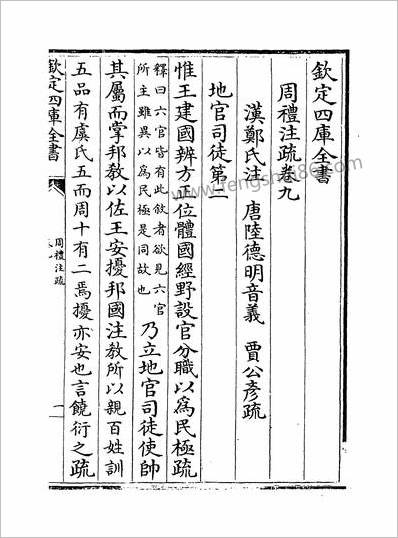 欽定四庫全書
周禮注疏卷九
漢鄭氏注 唐陸德明音義 賈公彦疏
地官司徒第二
惟王建國辨方正位體國經野設官分職以為民極疏
釋曰六官皆有此敘者欲見六官
所主雖異以為民極是同故也
乃立地官司徒使帥
其屬而掌邦教以佐王安擾邦國注教所以親百姓訓
五品有虞氏五而周十有二焉擾亦安也言饒衍之疏
欽定四庫全書
周禮注疏
一
www.fengshui86.com